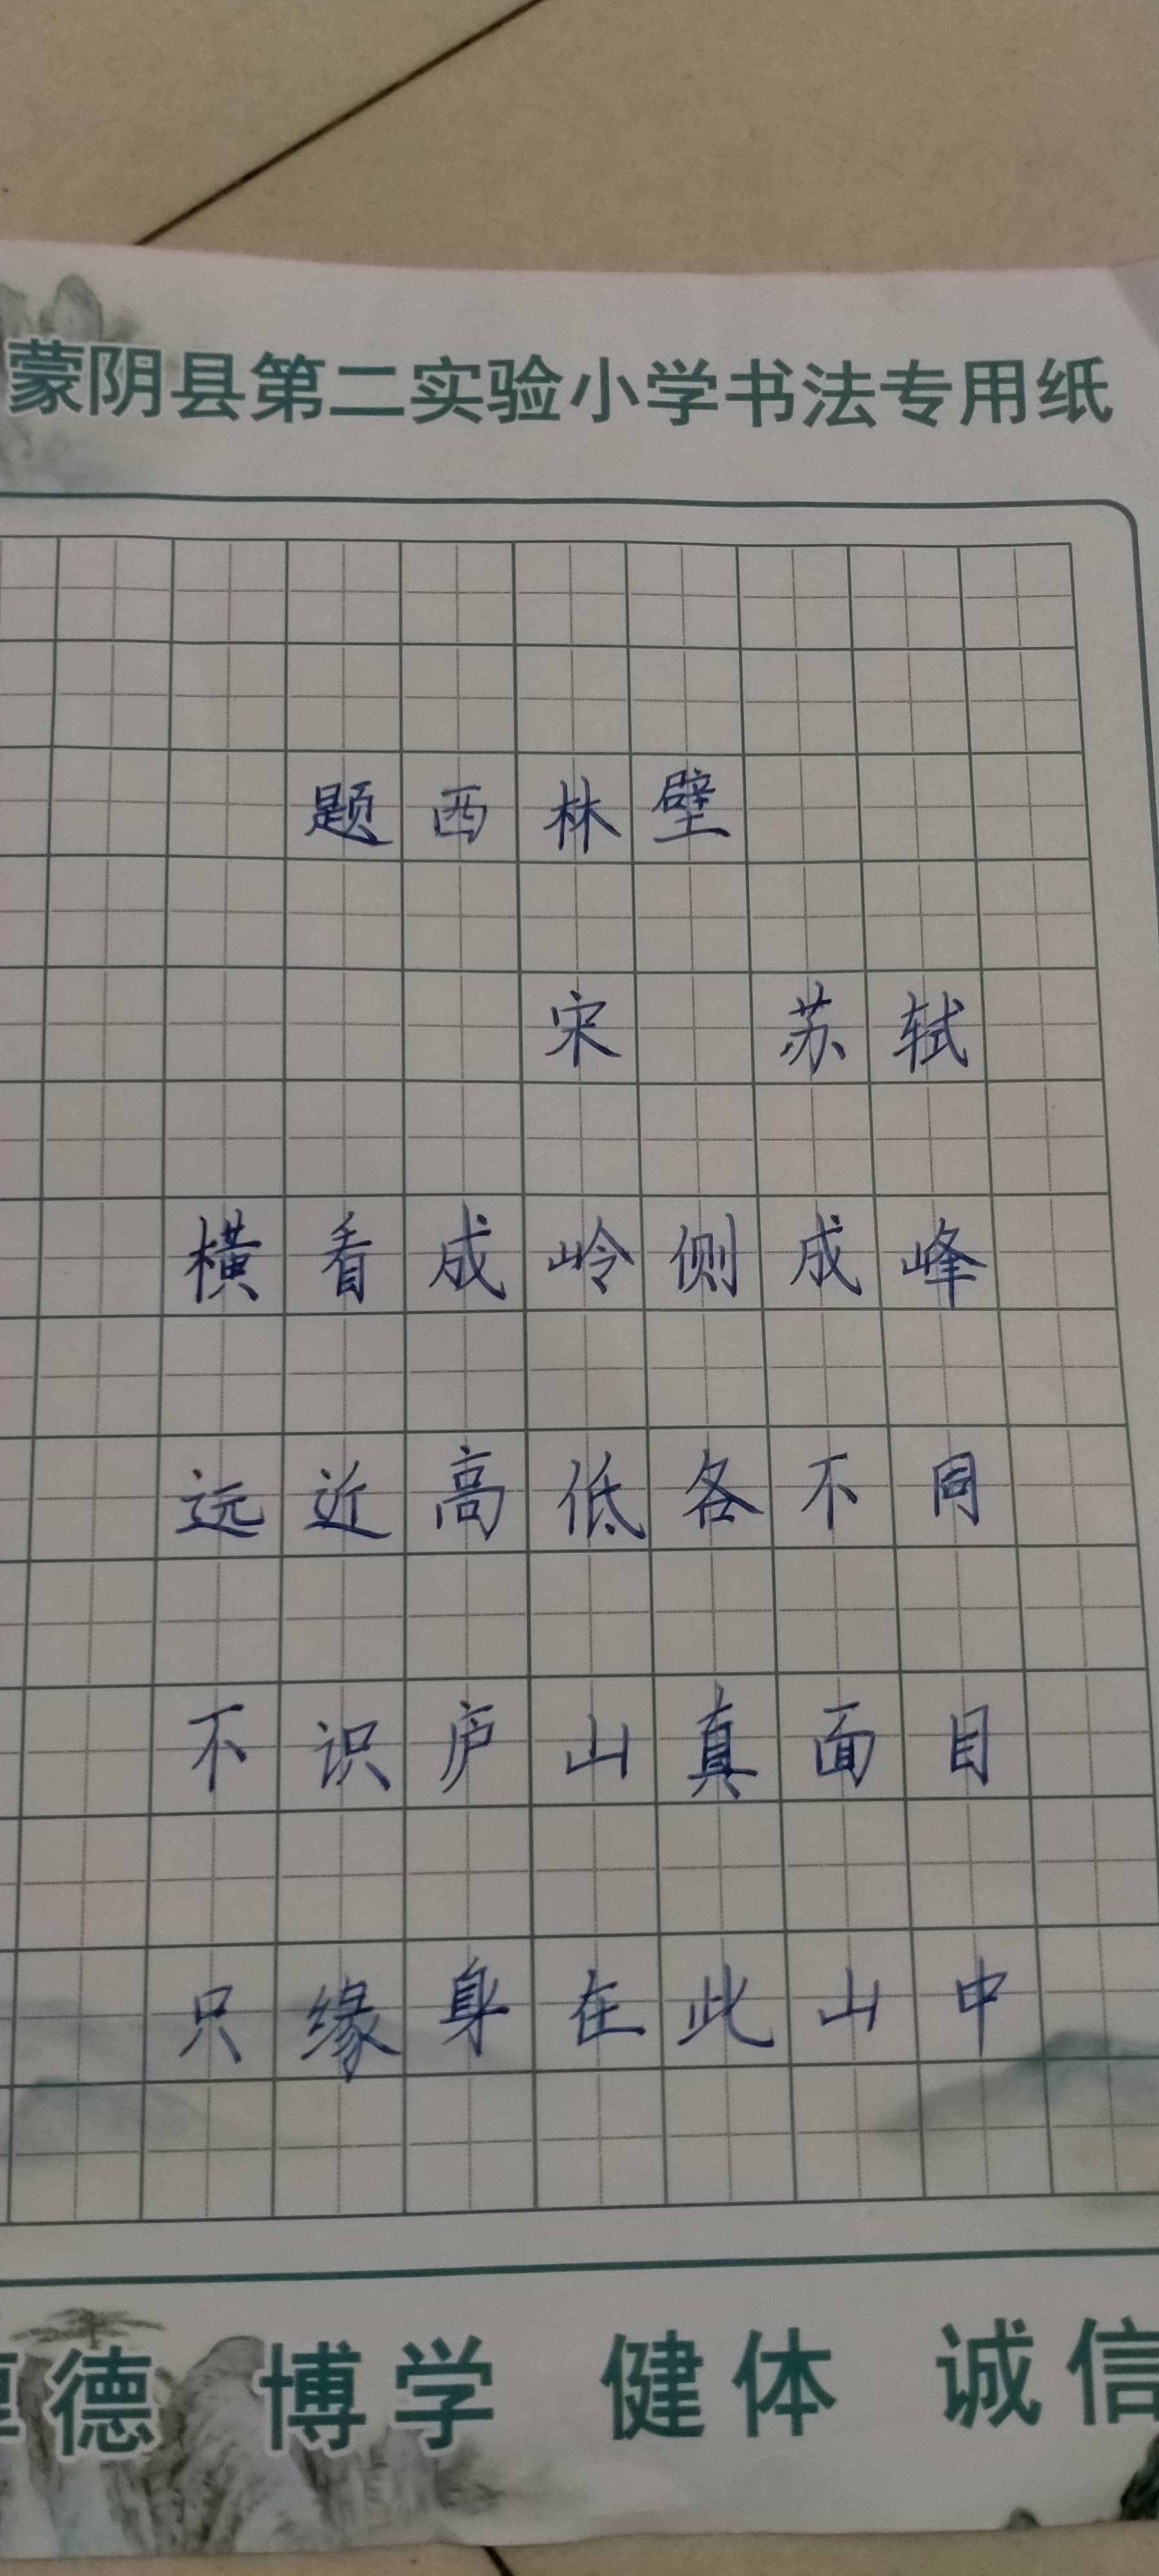 蒙阴县第二实验小学书法专用纸
题西林壁
宋 苏轼
横看成岭侧成峰
远近高低各不同
不识庐山真面目
只缘身在此山中
厚德 博学 健体 诚信